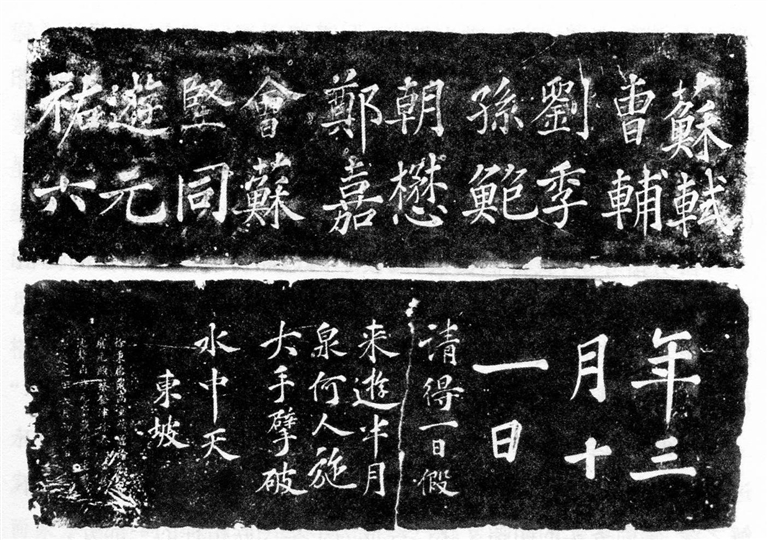 蘇軾
曹輔
劉季
孫鮑
朝懋
鄭嘉
會蘇
堅同
遊元
祐六
年三
月十
一日
请得一日假
来遊半月
泉何人施
大手擘破
水中天
東坡